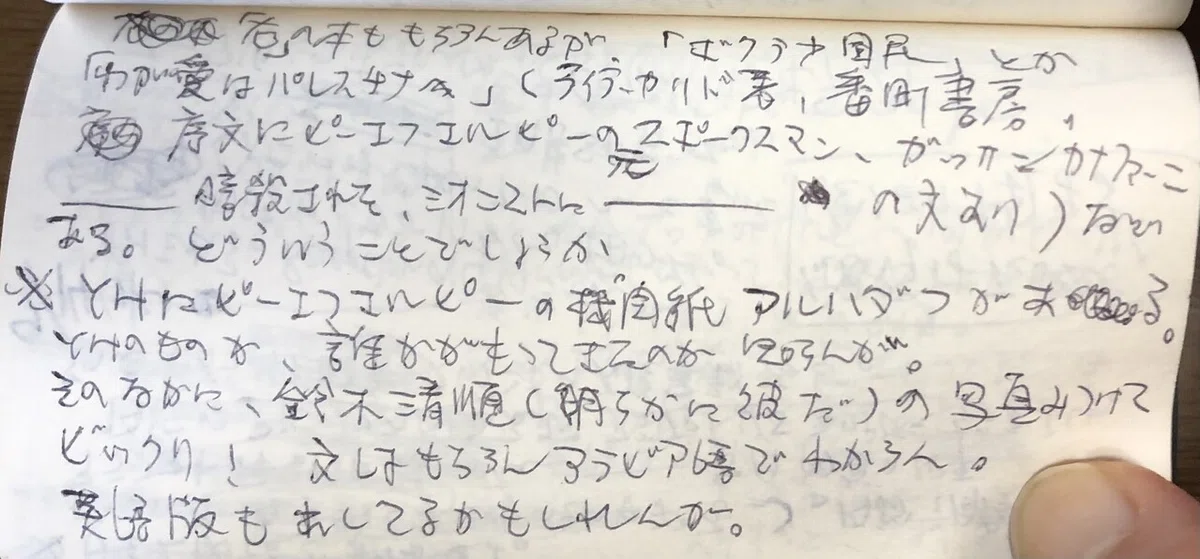 「右」の本ももちろんあるが、「ボクラナ国民」とか
「わが愛はパレスチナへ」(ライラ・カリド著、番町書房、
序文にピーエフエルピーの元スポークスマン、ガッサンカナファーニ
暗殺された、シオニストに の文あり)なども
ある。どういうことでしょうか
※ とくにピーエフエルピーの機関紙アルハダフがある。
とくのものか、誰かがもってきたのか 知らんが。
そのなかに、鈴木清順(明らかに彼だ)の写真みつけて
ビックリ! 文はもちろんアラビア語でわからん。
英語版も出してるかもしれんが。